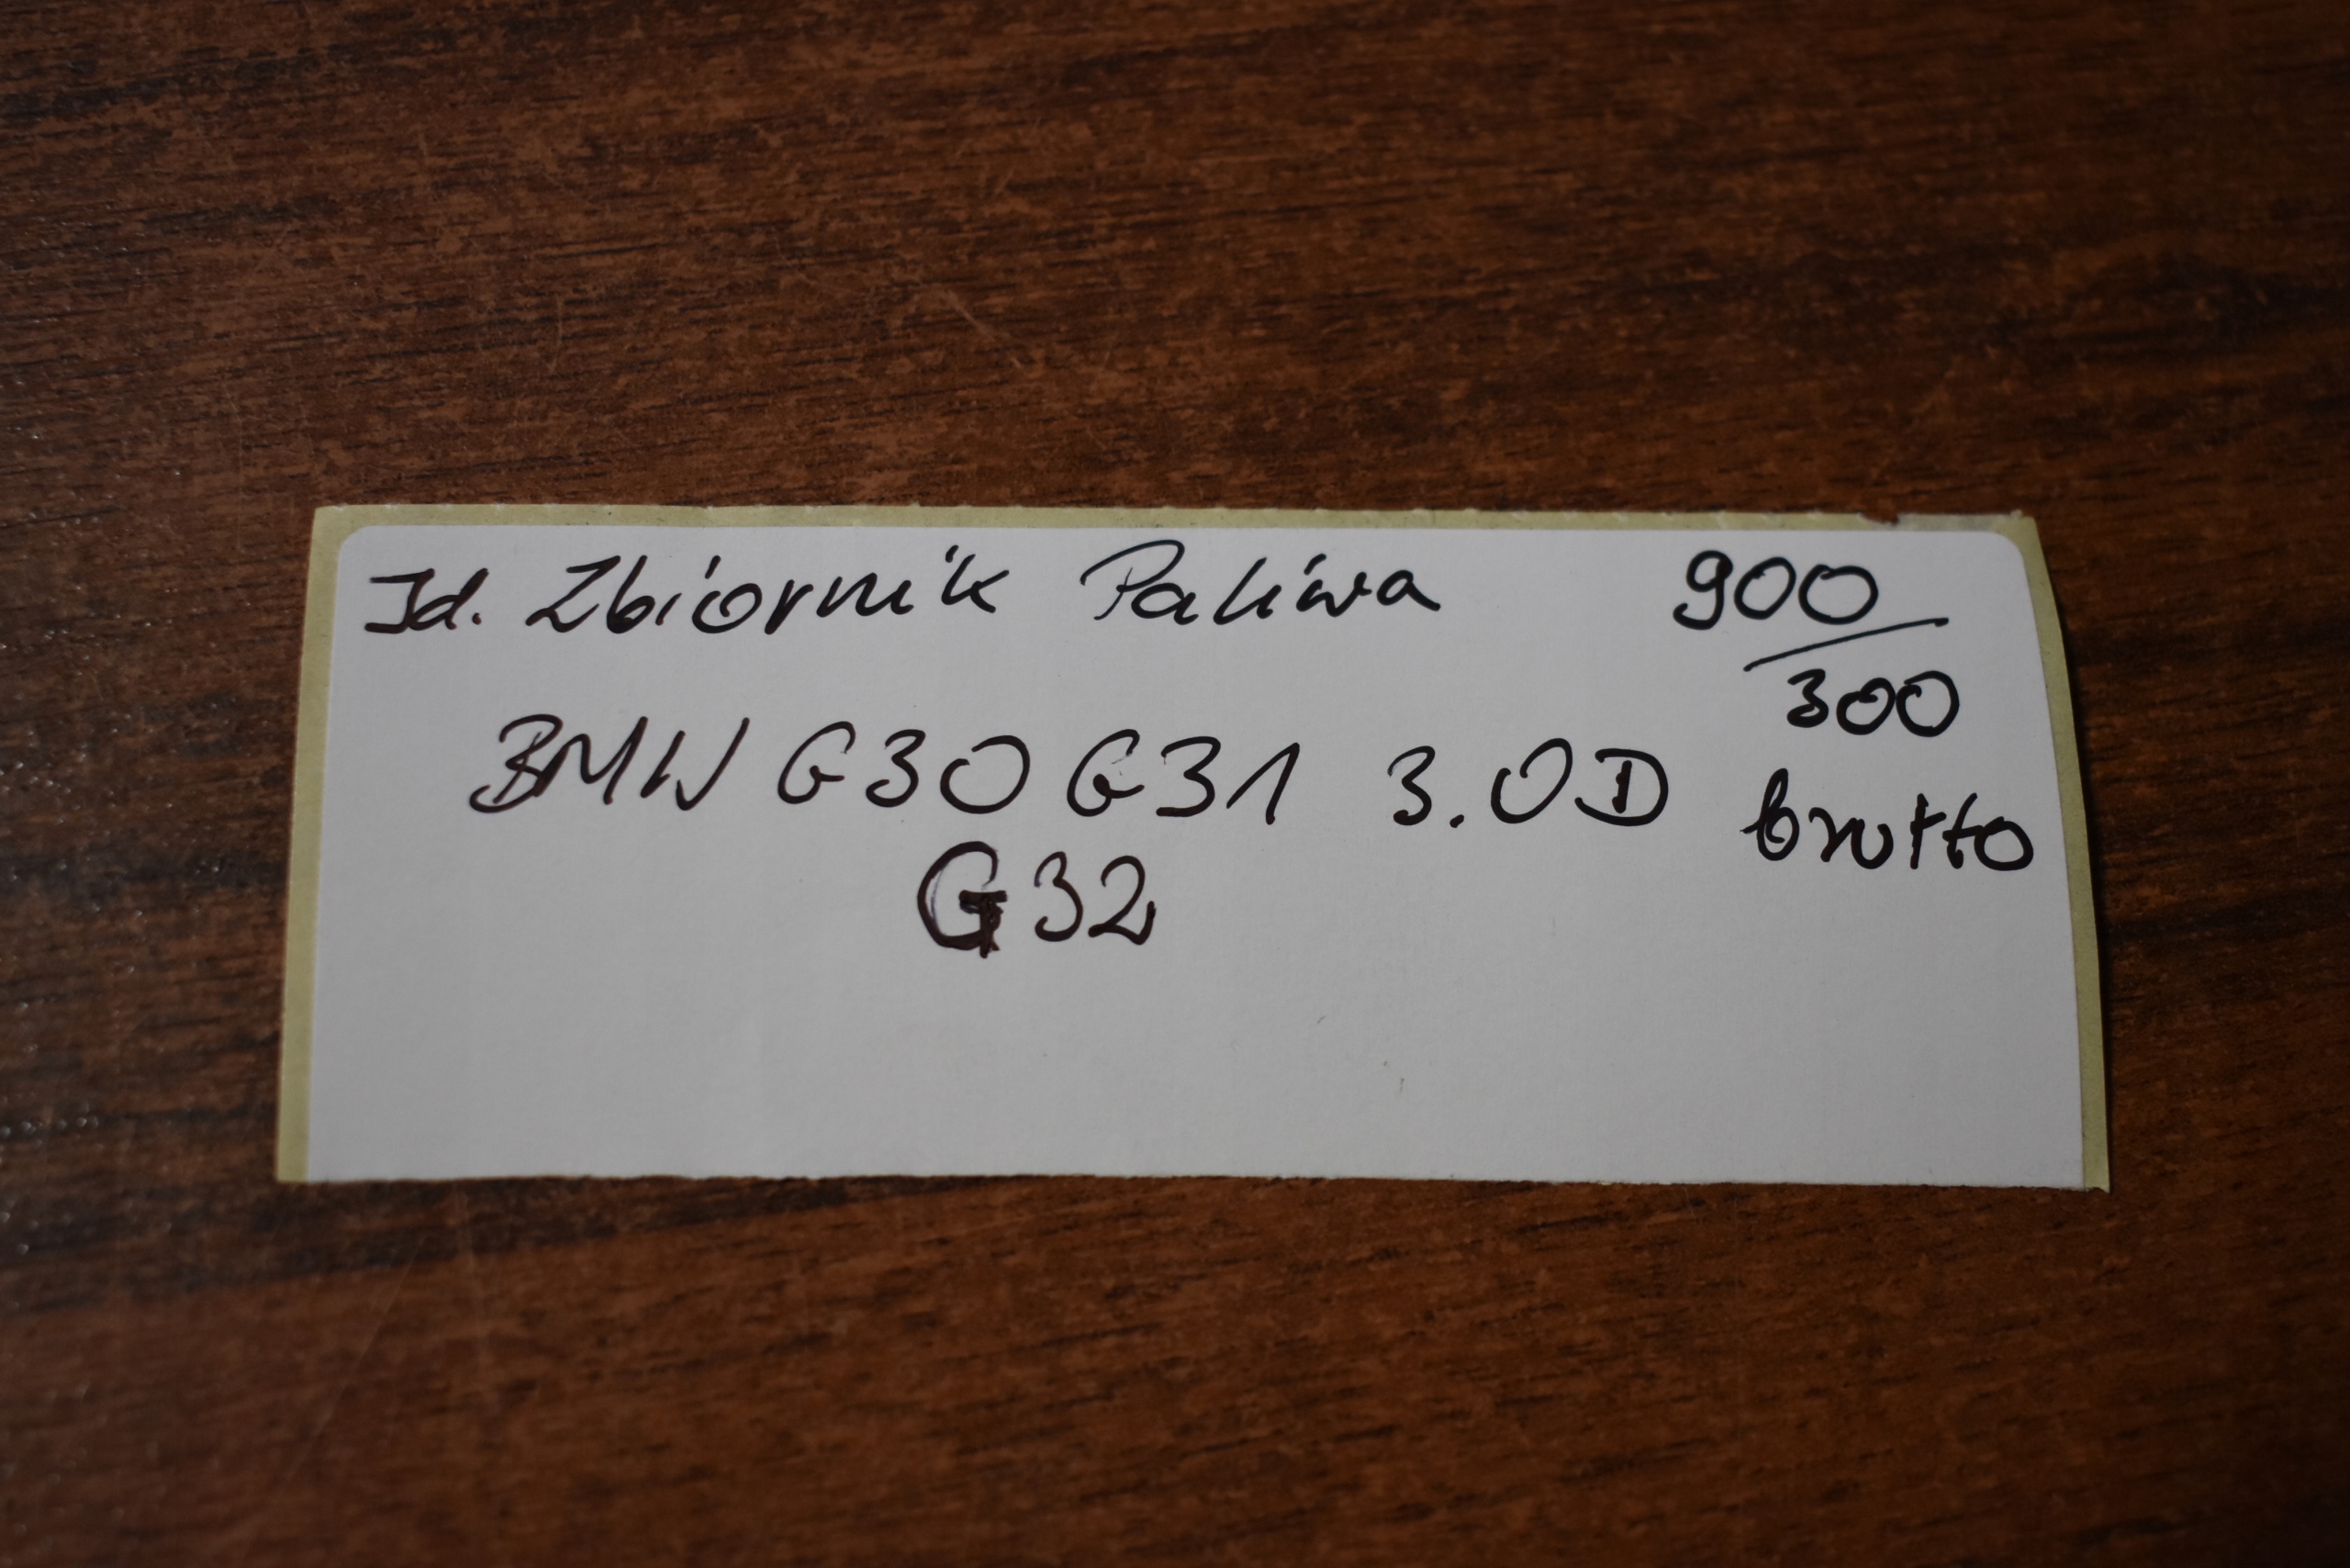 Id. Zbiornik Paliwa 900
300
BMW G30 G31 3.0D brutto
G32